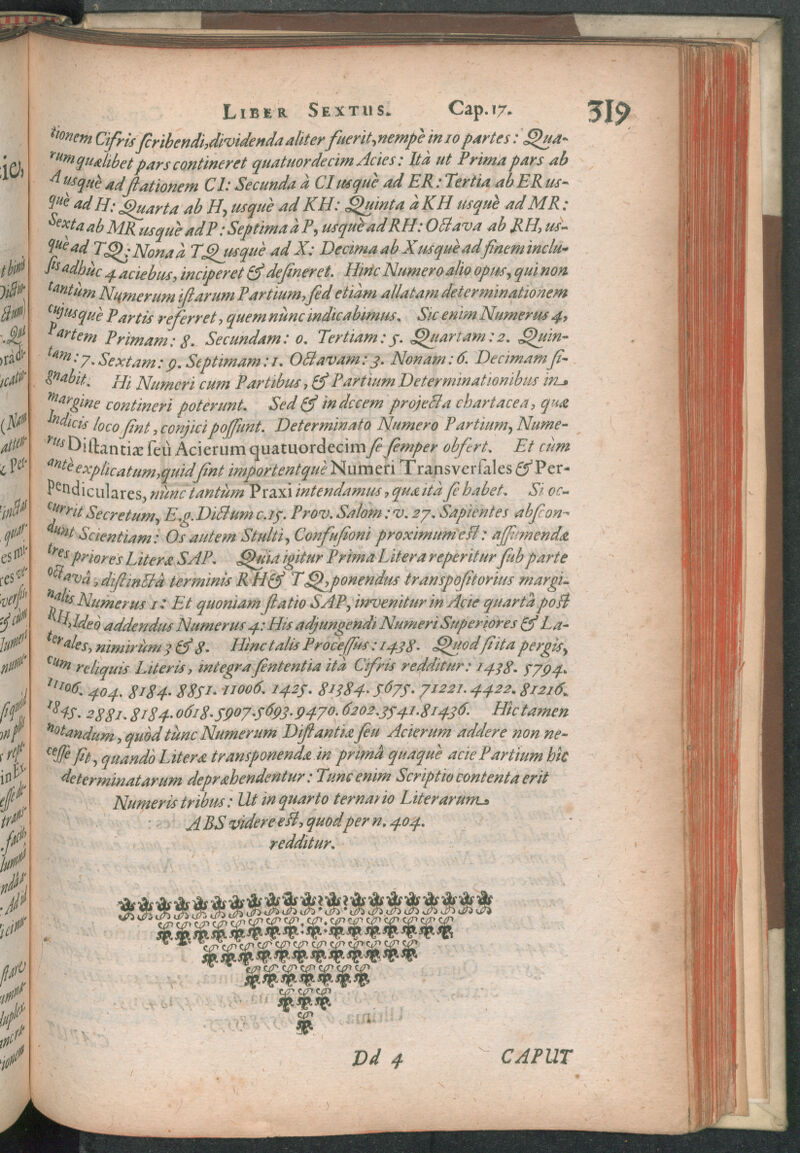 LIBER SEXTUS. Cap. 17. 319
tionem Cifris ſcribendi, dividenda aliter fuerit, nempè in 10 partes: Qua-
rum quælibet pars contineret quatuordecim Acies: Ità ut Prima pars ab
A usquè ad ſtationem CI: Secunda à CI usquè ad ER: Tertia ab ER us-
què ad H: Quarta ab H, usquè ad KH: Quinta à KH usquè ad MR:
Sexta ab MR usquè ad P: Septima à P, usquè ad RH: Octava ab RH, us-
què ad TQ: Nona à TQ usquè ad X: Decima ab X usquè ad finem inclu-
ſis adhùc 4 aciebus, inciperet & deſineret. Hinc Numero alio opus, qui non
tantùm Numerum iſtarum Partium, ſed etiàm allatam determinationem
cujusquè Partis referret, quem nùnc indicabimus. Sic enim Numerus 4,
Partem Primam: 8. Secundam: 0. Tertiam: 5. Quartam: 2. Quin-
tam: 7. Sextam: 9. Septimam: 1. Octavam: 3. Nonam: 6. Decimam ſi-
gnabit. Hi Numeri cum Partibus, & Partium Determinationibus in
margine contineri poterunt. Sed & in decem projecta chartacea, quæ
Indicis loco ſint, conjici poſſunt. Determinato Numero Partium, Nume-
rus Diſtantiæ ſeù Acierum quatuordecim ſe ſemper obfert. Et cùm
antè explicatum, quid ſint importentquè Numeri Transverſales & Per-
pendiculares, nùnc tantùm Praxi intendamus, quæ ità ſe habet. Si oc-
currit Secretum, E.g. Dictum c. 15. Prov. Salom: v. 27. Sapientes abſcon-
dunt Scientiam: Os autem Stulti, Confuſioni proximum eſt: aſſumendæ
tres priores Literæ SAP. Quia igitur Prima Litera reperitur ſub parte
octavâ, diſtinctâ terminis RH & TQ, ponendus transpoſitorius margi-
nalis Numerus 1: Et quoniam ſtatio SAP, invenitur in Acie quartâ poſt
RH, Ideò addendus Numerus 4: His adjungendi Numeri Superiores & La-
terales, nimirùm 3 & 8. Hinc talis Proceſſus: 1438. Quod ſi ita pergis,
cum reliquis Literis, integra ſententia ità Cifris redditur: 1438. 5794.
1106. 404. 8184. 8851. 11006. 1425. 81384. 5675. 71221. 4422. 81216.
1845. 2881. 8184. 0618. 5907. 5693. 9470. 6202. 3541. 81436. Hic tamen
notandum, quòd tùnc Numerum Diſtantiæ ſeu Acierum addere non ne-
ceſſe ſit, quandò Literæ transponendæ in primâ quaquè acie Partium hìc
determinatarum depræhendentur: Tunc enim Scriptio contenta erit
Numeris tribus: Ut in quarto ternario Literarum
ABS videre eſt, quod per n. 404.
redditur.
Dd 4 CAPUT